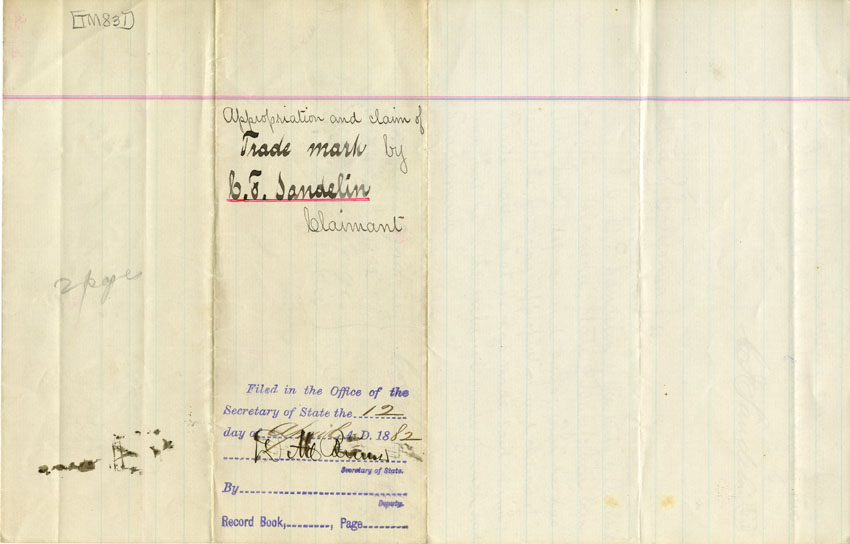 [TM831]
Appropriation and claim of
Trade mark by
C. F. Sandelin
Claimant
2 page
Filed in the Office of the
Secretary of State the 12
day of April A. D. 1882
Secretary of State.
By
Deputy.
Record Book, , Page